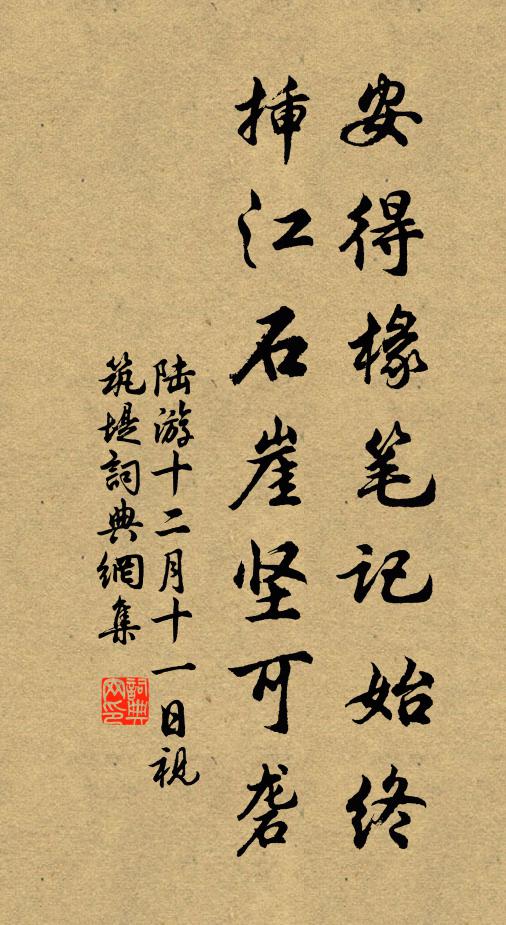 安得椽笔记始终
插江石崖坚可砻
陆游十二月十一日视
筑堤詞典網集
詞典
网印